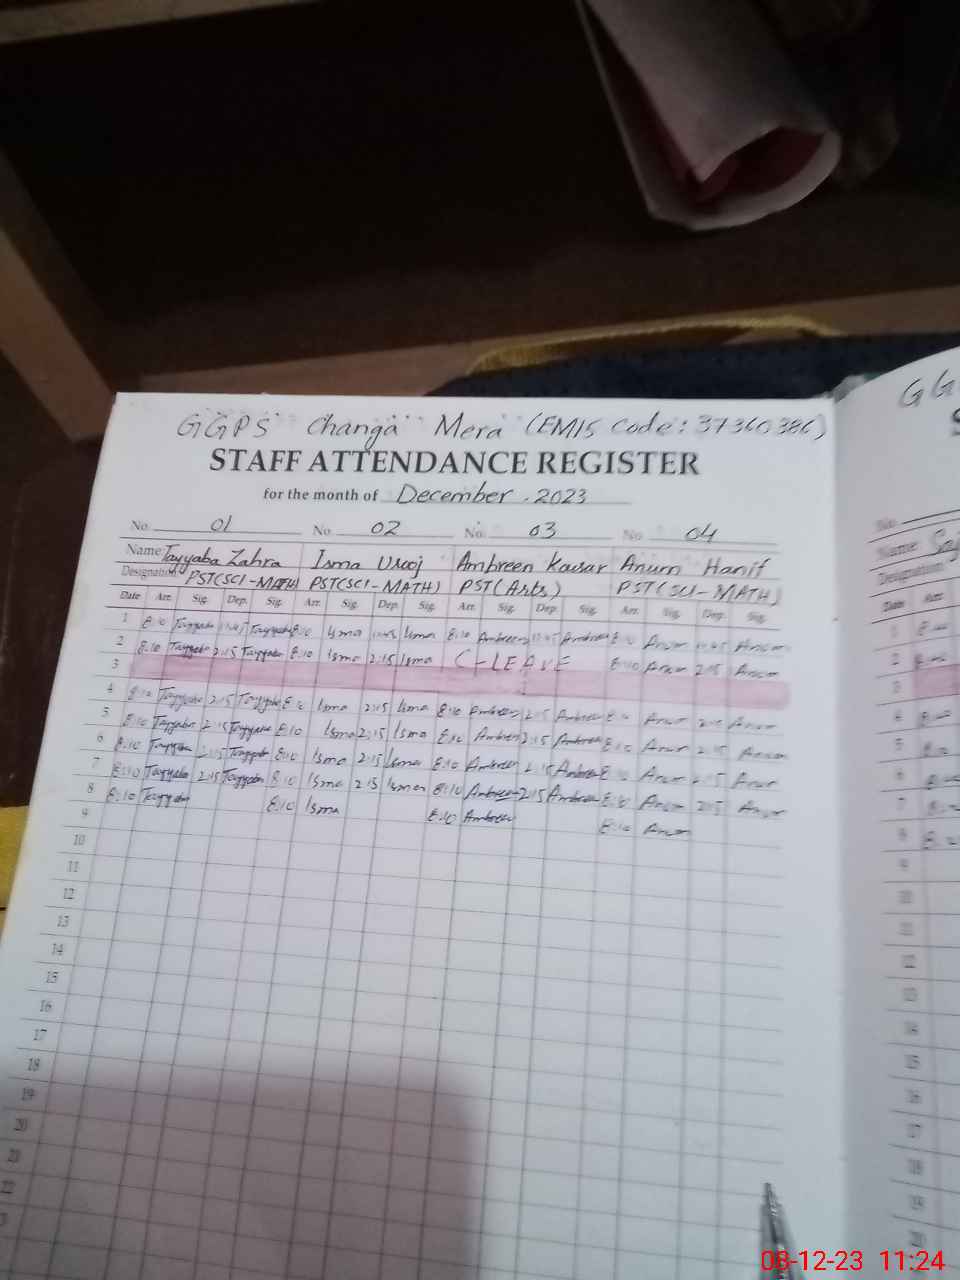 GGPS Changa Mera (EMIS Code: 37360386)
STAFF ATTENDANCE REGISTER
for the month of December 2023
No. 01 No. 02 No. 03 No. 04
Name: Tayyaba Zahra Isma Urooj Ambreen Kausar Anum Hanif
Designation PST(SCI-MATH) PST(SCI-MATH) PST(Arts) PST(SCI-MATH)
Date Arr. Sig. Dep. Sig. Arr. Sig. Dep. Sig. Arr. Sig. Dep. Sig. Arr. Sig. Dep. Sig.
1 8:10 Tayyaba Tayyaba 8:10 Isma Isma 8:10 Ambreen Ambreen 8:10 Anum Anum
2 8:10 Tayyaba 2:15 Tayyaba 8:10 Isma 2:15 Isma C-LEAVE 8:10 Anum 2:15 Anum
3
4 8:10 Tayyaba 2:15 Tayyaba 8:10 Isma 2:15 Isma 8:10 Ambreen 2:15 Ambreen 8:10 Anum 2:15 Anum
5 8:10 Tayyaba 2:15 Tayyaba 8:10 Isma 2:15 Isma 8:10 Ambreen 2:15 Ambreen 8:10 Anum 2:15 Anum
6 8:10 Tayyaba 2:15 Tayyaba 8:10 Isma 2:15 Isma 8:10 Ambreen 2:15 Ambreen 8:10 Anum 2:15 Anum
7 8:10 Tayyaba 2:15 Tayyaba 8:10 Isma 2:15 Isma 8:10 Ambreen 2:15 Ambreen 8:10 Anum 2:15 Anum
8 8:10 Tayyaba 8:10 Isma 8:10 Ambreen 8:10 Anum
9
10
11
12
13
14
15
16
17
18
19
20
21
22
08-12-23 11:24